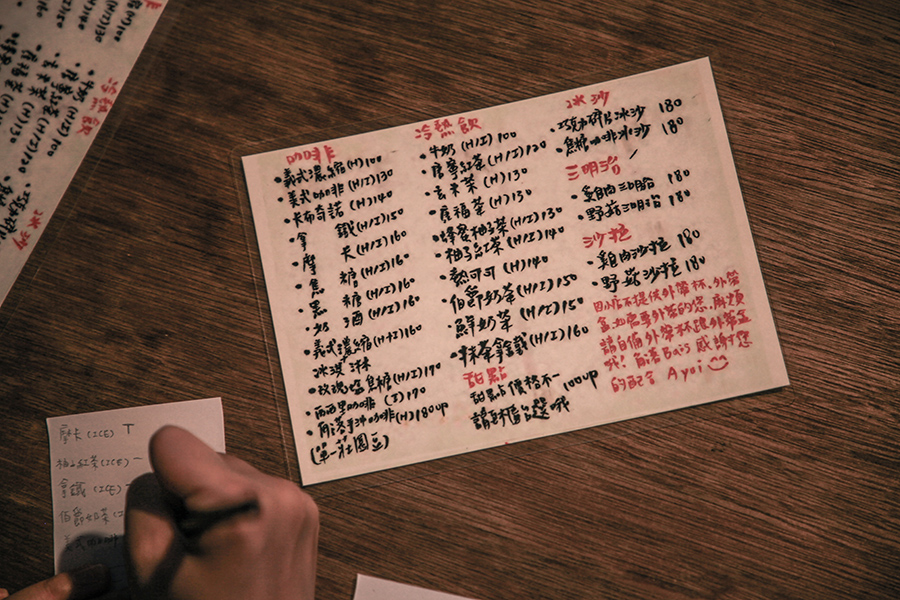 咖啡
・義式濃縮(H)100
・美式咖啡(H/I)130
・卡布奇諾(H/I)140
・拿 鐵(H/I)150
・摩 卡(H/I)160
・焦 糖(H/I)160
・黑 糖(H/I)160
・奶 酒(H/I)160
・義式濃縮(H+I)160
冰淇淋
・玫瑰鹽焦糖(H/I)170
・西西里咖啡(I)170
・角落手沖咖啡(H)180up
(單一莊園豆)
冷熱飲
・牛奶(H/I)100
・唐寧紅茶(H/I)120
・玄米茶(H)130
・庇福茶(H)130
・蜂蜜柚子茶(H/I)130
・柚子紅茶(H/I)140
・熱可可(H)140
・伯爵奶茶(H/I)150
・鮮奶茶(H/I)150
・抹茶拿鐵(H/I)160
甜點
甜點價格不一 100up
請到櫃台選哦
冰沙
・巧克力碎片冰沙 180
・焦糖咖啡冰沙 180
三明治
・雞肉三明治 180
・野菇三明治 180
沙拉
・雞肉沙拉 180
・野菇沙拉 180
因小店不提供外帶杯、外帶
盒,如需要外帶的您,麻煩
請自備外帶杯跟外帶盒
哦!角落Bar's感謝您
的配合 Ayoi
摩卡(ICE) T
柚子紅茶(ICE) 一
拿鐵(ICE)
伯爵奶茶
美式咖啡
冷熱飲
冰沙